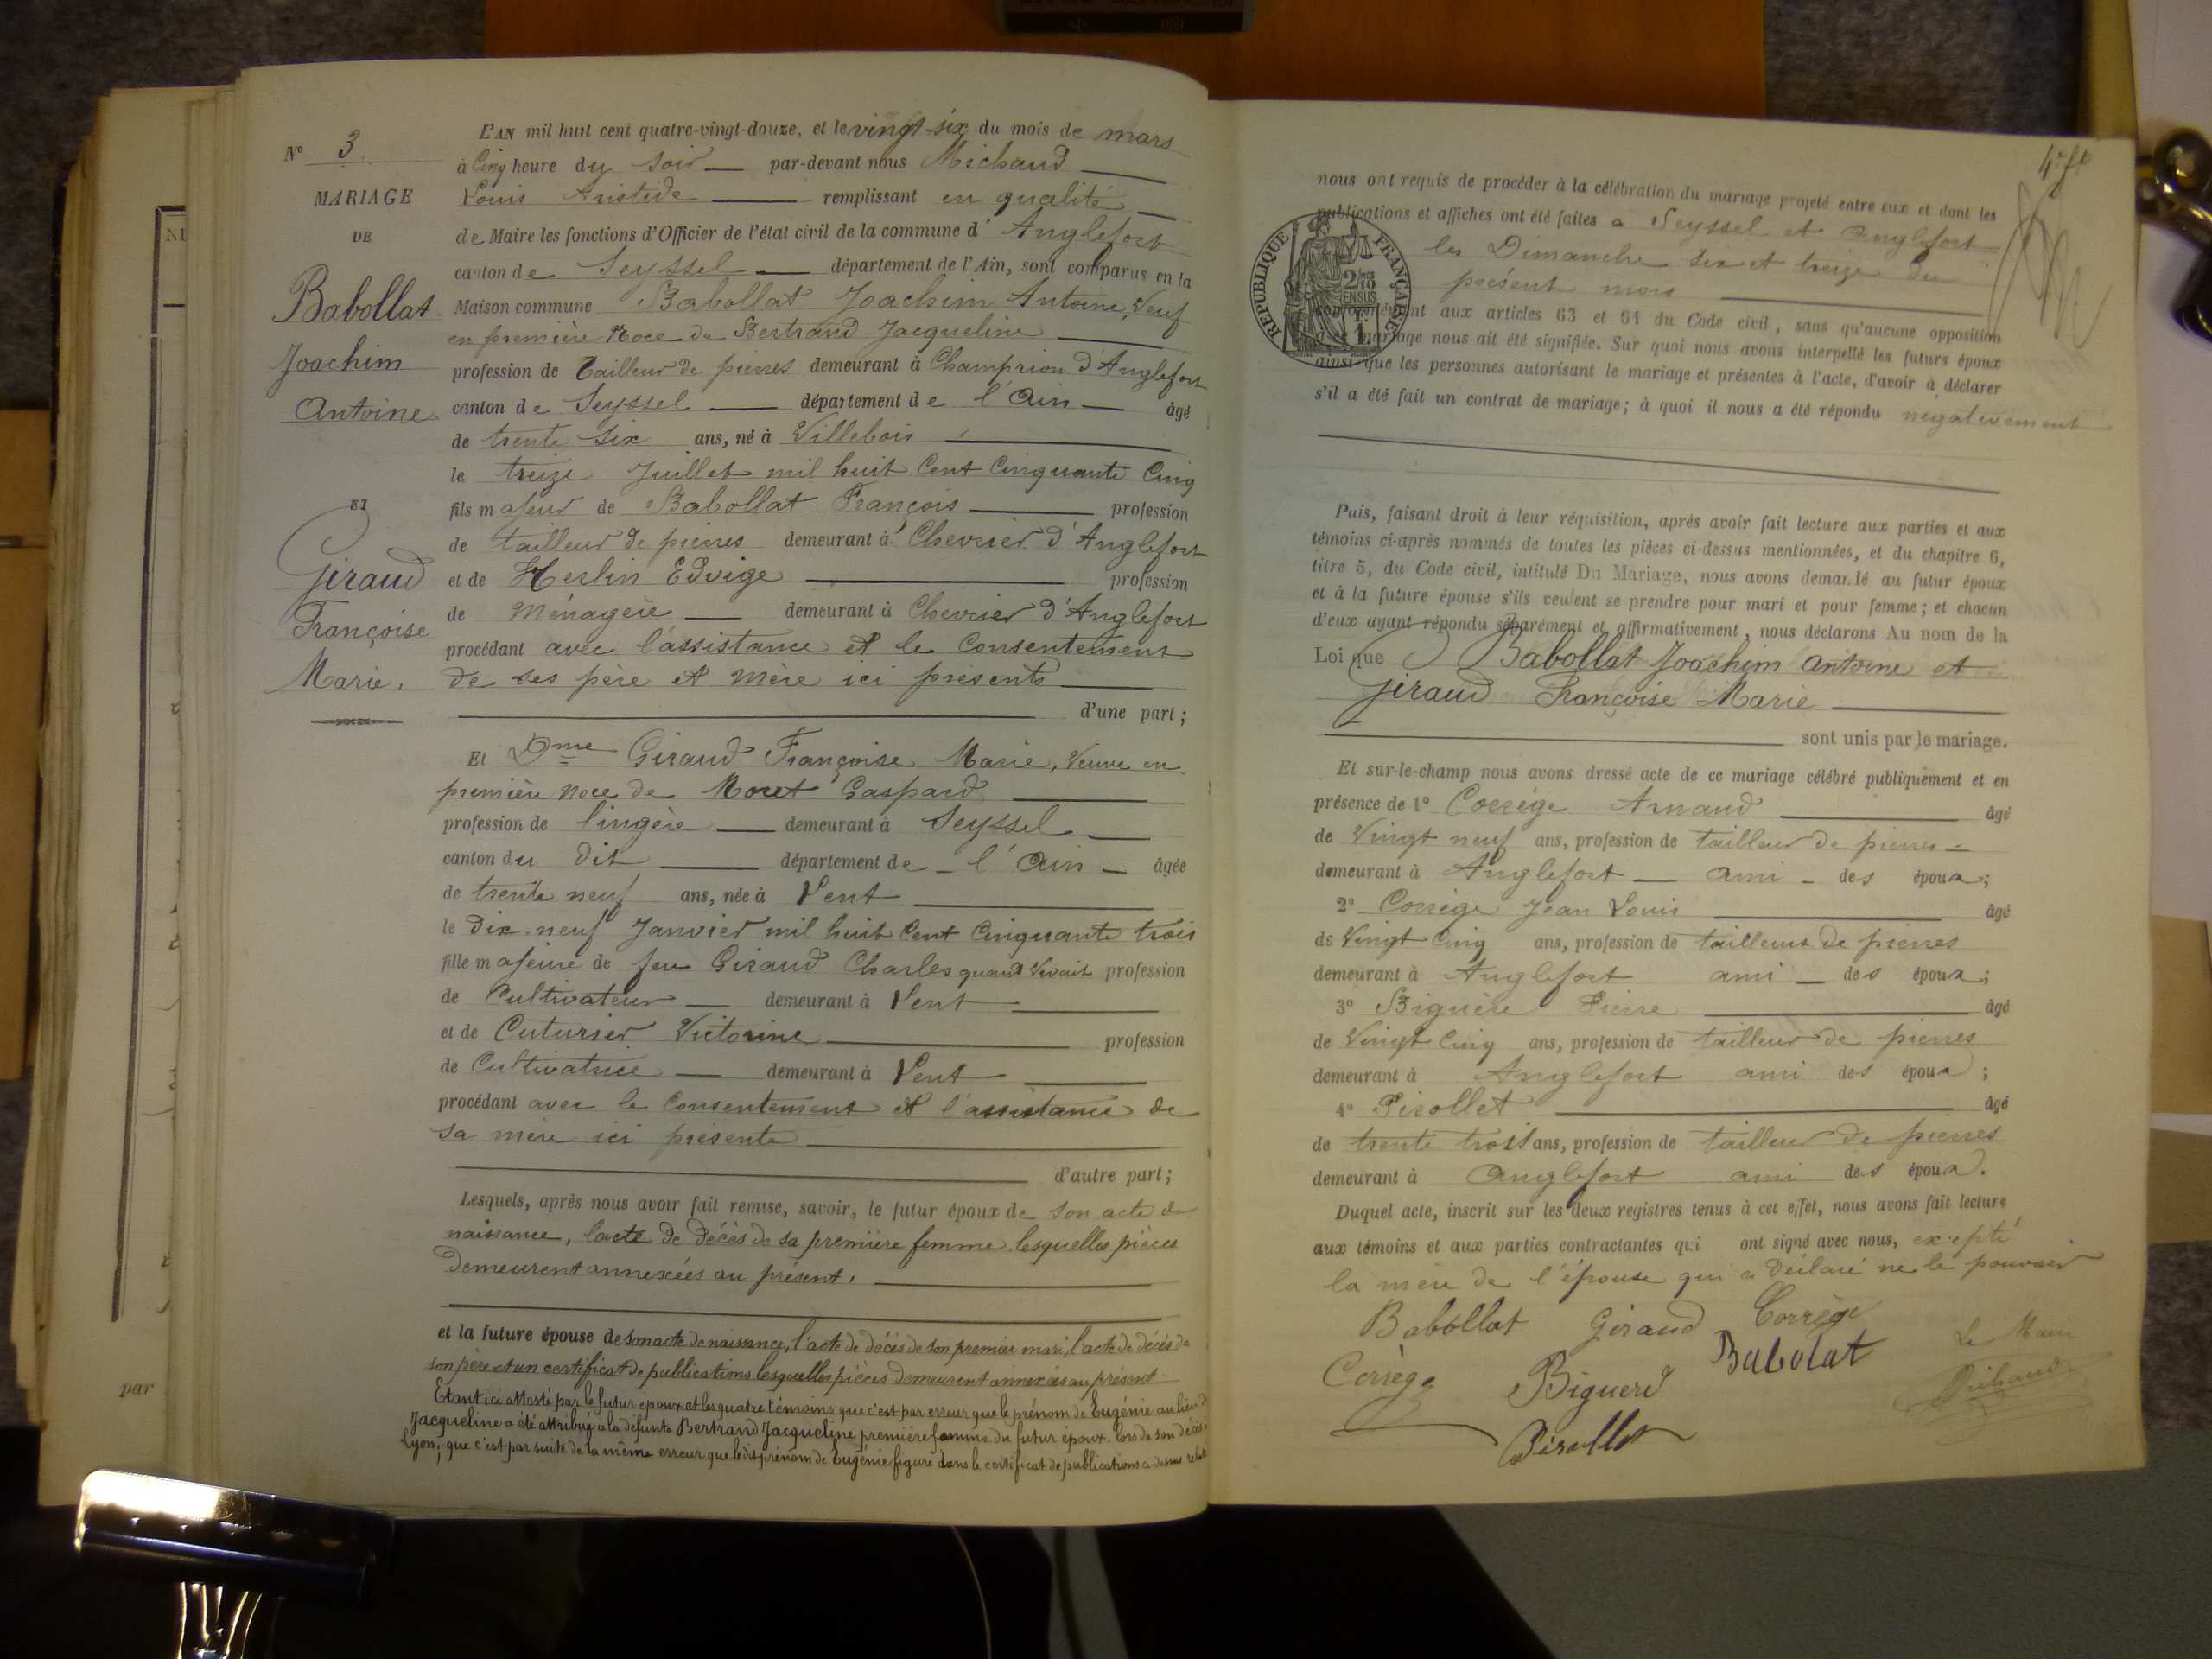 N° 3
MARIAGE
DE
Babollat
Joachim
Antoine
ET
Giraud
Françoise
Marie.
L'AN mil huit cent quatre-vingt-douze, et le vingt-six du mois de mars
à Cinq heure du soir par-devant nous Michaud
Louis Aristide remplissant en qualité
de Maire les fonctions d'Officier de l'état civil de la commune d' Anglefort
canton de Seyssel département de l'Ain, sont comparus en la
Maison commune Babollat Joachim Antoine, Veuf
en première Noce de Bertrand Jacqueline
profession de Tailleur de pierres demeurant à Champrion d'Anglefort
canton de Seyssel département de l'Ain âgé
de trente six ans, né à Villebois
le treize Juillet mil huit Cent Cinquante Cinq
fils majeur de Babollat François profession
de tailleur de pierres demeurant à Chevrier d'Anglefort
et de Herlin Edvige profession
de Ménagère demeurant à Chevrier d'Anglefort
procédant avec l'assistance et le Consentement
de ses père et mère ici présents
d'une part;
Et Dme Giraud Françoise Marie, Veuve en
première noce de Moret Gaspard
profession de lingère demeurant à Seyssel
canton du dit département de l'Ain âgée
de trente neuf ans, née à Vent
le Dix-neuf Janvier mil huit Cent Cinquante trois
fille majeure de feu Giraud Charles quand Vivait profession
de Cultivateur demeurant à Vent
et de Cuturier Victorine profession
de Cultivatrice demeurant à Vent
procédant avec le Consentement et l'assistance de
sa mère ici présente
d'autre part;
Lesquels, après nous avoir fait remise, savoir, le futur époux de son acte de
naissance, l'acte de décès de sa première femme, lesquelles pièces
demeurent annexées au présent.
et la future épouse de son acte de naissance, l'acte de décès de son premier mari, l'acte de décès de
son père et un certificat de publications lesquelles pièces demeurent annexées au présent
Etant ici attesté par le futur époux et les quatre témoins que c'est par erreur que le prénom de Eugénie au lieu de
Jacqueline a été attribué à la défunte Bertrand Jacqueline première femme du futur époux lors de son décès à
Lyon; que c'est par suite de la même erreur que le dit prénom de Eugénie figure dans le certificat de publications ci dessus relaté
par
nous ont requis de procéder à la célébration du mariage projeté entre eux et dont les
publications et affiches ont été faites à Seyssel et Anglefort
les Dimanche six et treize du
présent mois
conformément aux articles 63 et 64 du Code civil, sans qu'aucune opposition
à ce mariage nous ait été signifiée. Sur quoi nous avons interpellé les futurs époux
ainsi que les personnes autorisant le mariage et présentes à l'acte, d'avoir à déclarer
s'il a été fait un contrat de mariage; à quoi il nous a été répondu négativement
RÉPUBLIQUE FRANÇAISE
2/10 EN SUS
1
Puis, faisant droit à leur réquisition, après avoir fait lecture aux parties et aux
témoins ci-après nommés de toutes les pièces ci-dessus mentionnées, et du chapitre 6,
titre 5, du Code civil, intitulé Du Mariage, nous avons demandé au futur époux
et à la future épouse s'ils veulent se prendre pour mari et pour femme; et chacun
d'eux ayant répondu séparément et affirmativement, nous déclarons Au nom de la
Loi que Babollat Joachim Antoine et
Giraud Françoise Marie
sont unis par le mariage.
Et sur-le-champ nous avons dressé acte de ce mariage célébré publiquement et en
présence de 1° Corrège Arnaud âgé
de Vingt neuf ans, profession de tailleur de pierres
demeurant à Anglefort ami des époux;
2° Corrège Jean Louis âgé
de Vingt Cinq ans, profession de tailleurs de pierres
demeurant à Anglefort ami des époux;
3° Biguère Pierre âgé
de Vingt Cinq ans, profession de tailleur de pierres
demeurant à Anglefort ami des époux;
4° Pirollet âgé
de trente trois ans, profession de tailleur de pierres
demeurant à Anglefort ami des époux.
Duquel acte, inscrit sur les deux registres tenus à cet effet, nous avons fait lecture
aux témoins et aux parties contractantes qui ont signé avec nous, excepté
la mère de l'épouse qui a déclaré ne le pouvoir
Babollat Giraud Corrège
Corrège Biguerd Babolat Le Maire
Pirollet